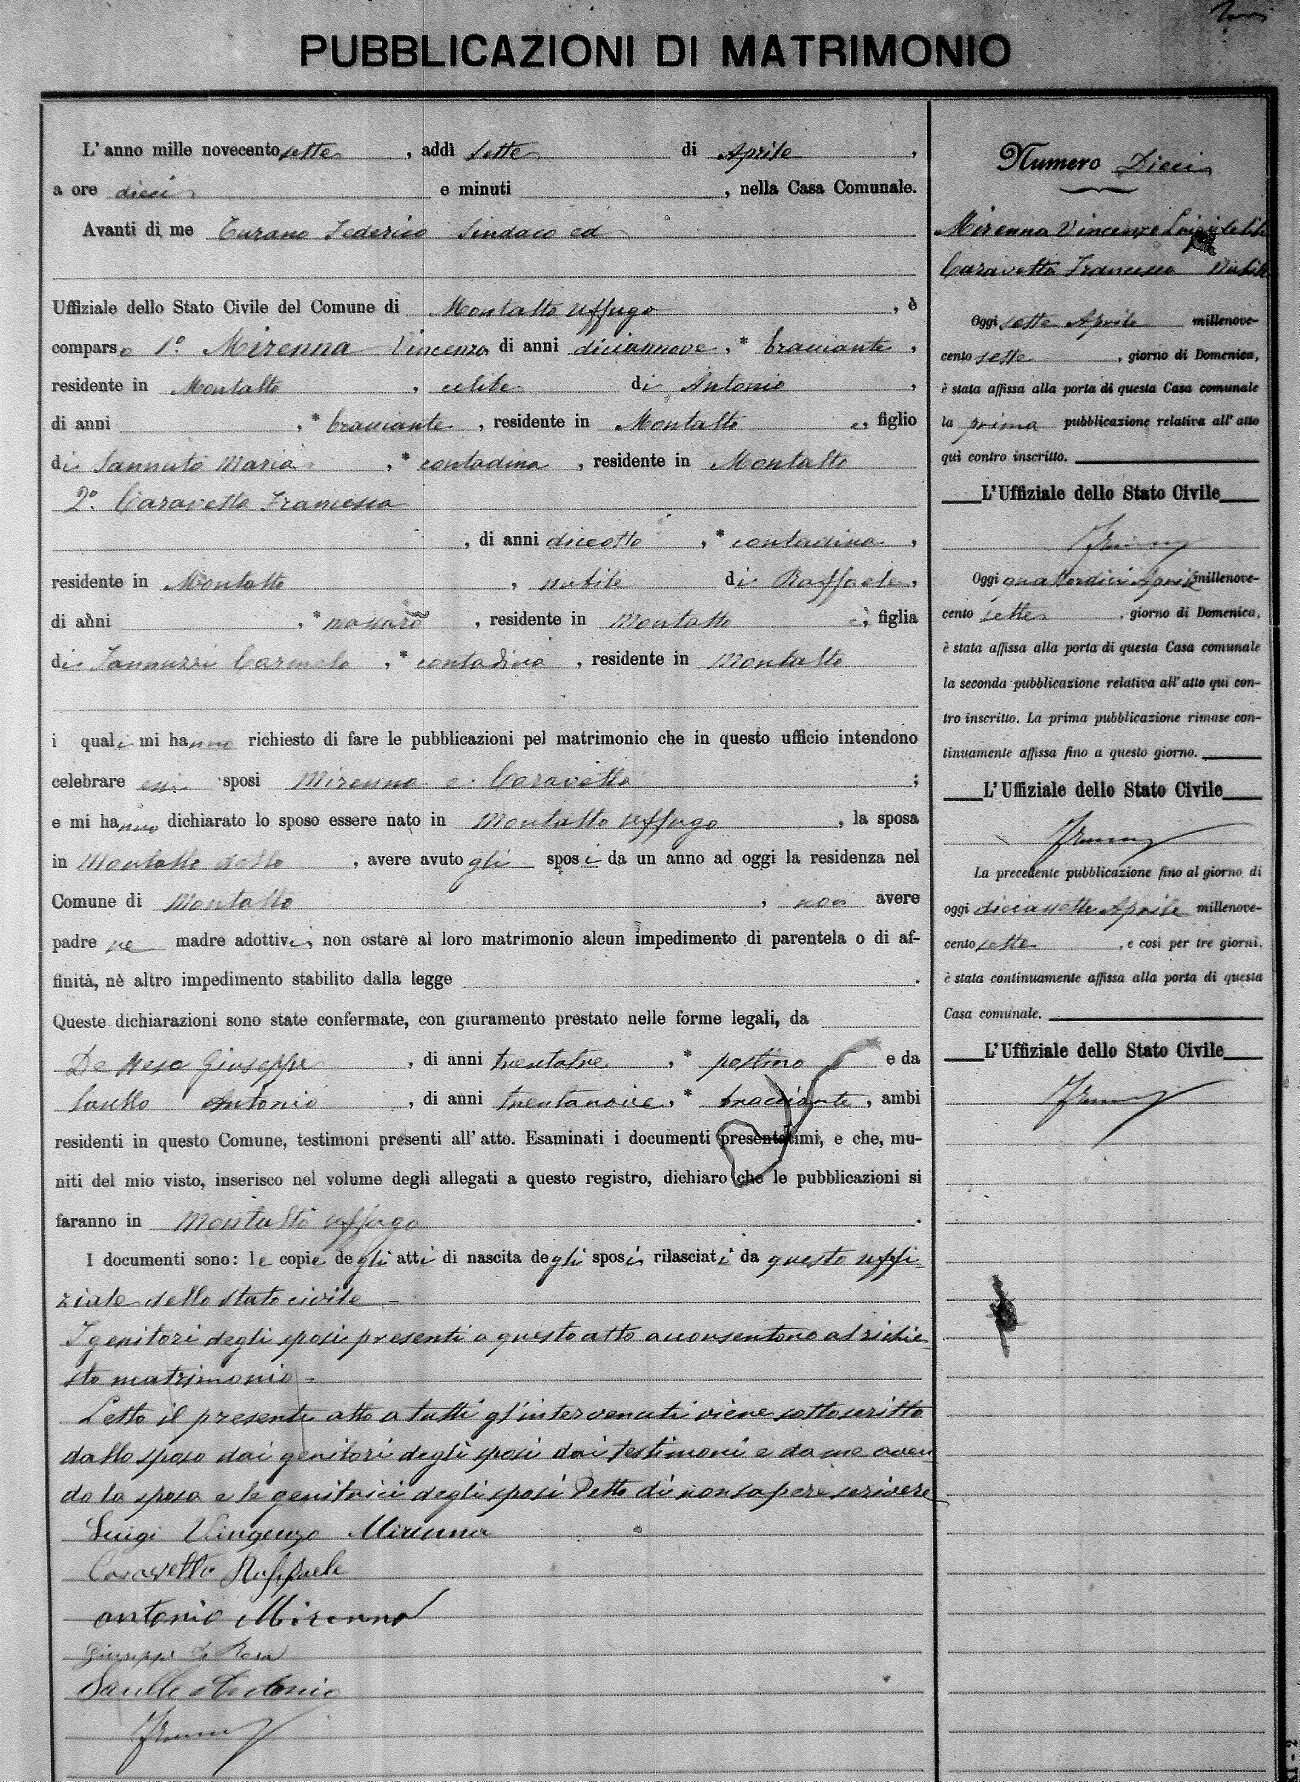 PUBBLICAZIONI DI MATRIMONIO
L'anno mille novecento sette, addì sette di Aprile,
a ore dieci e minuti , nella Casa Comunale.
Avanti di me Turano Federico Sindaco ed
Uffiziale dello Stato Civile del Comune di Montalto Uffugo, è
comparso 1º. Mirenna Vincenzo di anni diciannove, * bracciante,
residente in Montalto, celibe di Antonio,
di anni , * bracciante, residente in Montalto e, figlio
di Iannuto Maria, * contadina, residente in Montalto
2º. Caravetta Francesca
, di anni diciotto, * contadina,
residente in Montalto, nubile di Raffaele,
di anni , * , residente in Montalto e, figlia
di Iannuzzi Carmela, * contadina, residente in Montalto
i quali mi hanno richiesto di fare le pubblicazioni pel matrimonio che in questo ufficio intendono
celebrare essi sposi Mirenna e Caravetta ;
e mi hanno dichiarato lo sposo essere nato in Montalto Uffugo, la sposa
in Montalto detto, avere avuto gli sposi da un anno ad oggi la residenza nel
Comune di Montalto, non avere
padre ne madre adottivi, non ostare al loro matrimonio alcun impedimento di parentela o di af-
finità, nè altro impedimento stabilito dalla legge .
Queste dichiarazioni sono state confermate, con giuramento prestato nelle forme legali, da
De Giuseppe, di anni trentatre, * postino e da
Saullo Antonio, di anni trentanove, * bracciante, ambi
residenti in questo Comune, testimoni presenti all'atto. Esaminati i documenti presentatimi, e che, mu-
niti del mio visto, inserisco nel volume degli allegati a questo registro, dichiaro che le pubblicazioni si
faranno in Montalto Uffugo .
I documenti sono: le copie degli atti di nascita degli sposi rilasciati da questo uffi-
ziale dello stato civile
I genitori degli sposi presenti a questo atto acconsentono al richie-
sto matrimonio
Letto il presente atto a tutti gl'intervenuti viene sottoscritto
dallo sposo dai genitori degli sposi dai testimoni e da me aven
do la sposa e le genitrici degli sposi detto di non sapere scrivere
Luigi Vingenzo Mirenna
Caravetta Raffaele
antonio Mirenna
Giuseppe De Rosa
Saullo Antonio
Numero Dieci
Mirenna Vincenzo Luigi celibe
Caravetta Francesca nubile
Oggi sette Aprile millenove-
cento sette, giorno di Domenica,
è stata affissa alla porta di questa Casa comunale
la prima pubblicazione relativa all'atto
quì contro inscritto.
L'Uffiziale dello Stato Civile
Oggi quattordici Aprile millenove-
cento sette, giorno di Domenica,
è stata affissa alla porta di questa Casa comunale
la seconda pubblicazione relativa all'atto qui con-
tro inscritto. La prima pubblicazione rimase con-
tinuamente affissa fino a questo giorno.
L'Uffiziale dello Stato Civile
La precedente pubblicazione fino al giorno di
oggi diciassette Aprile millenove-
cento sette, e così per tre giorni,
è stata continuamente affissa alla porta di questa
Casa comunale.
L'Uffiziale dello Stato Civile